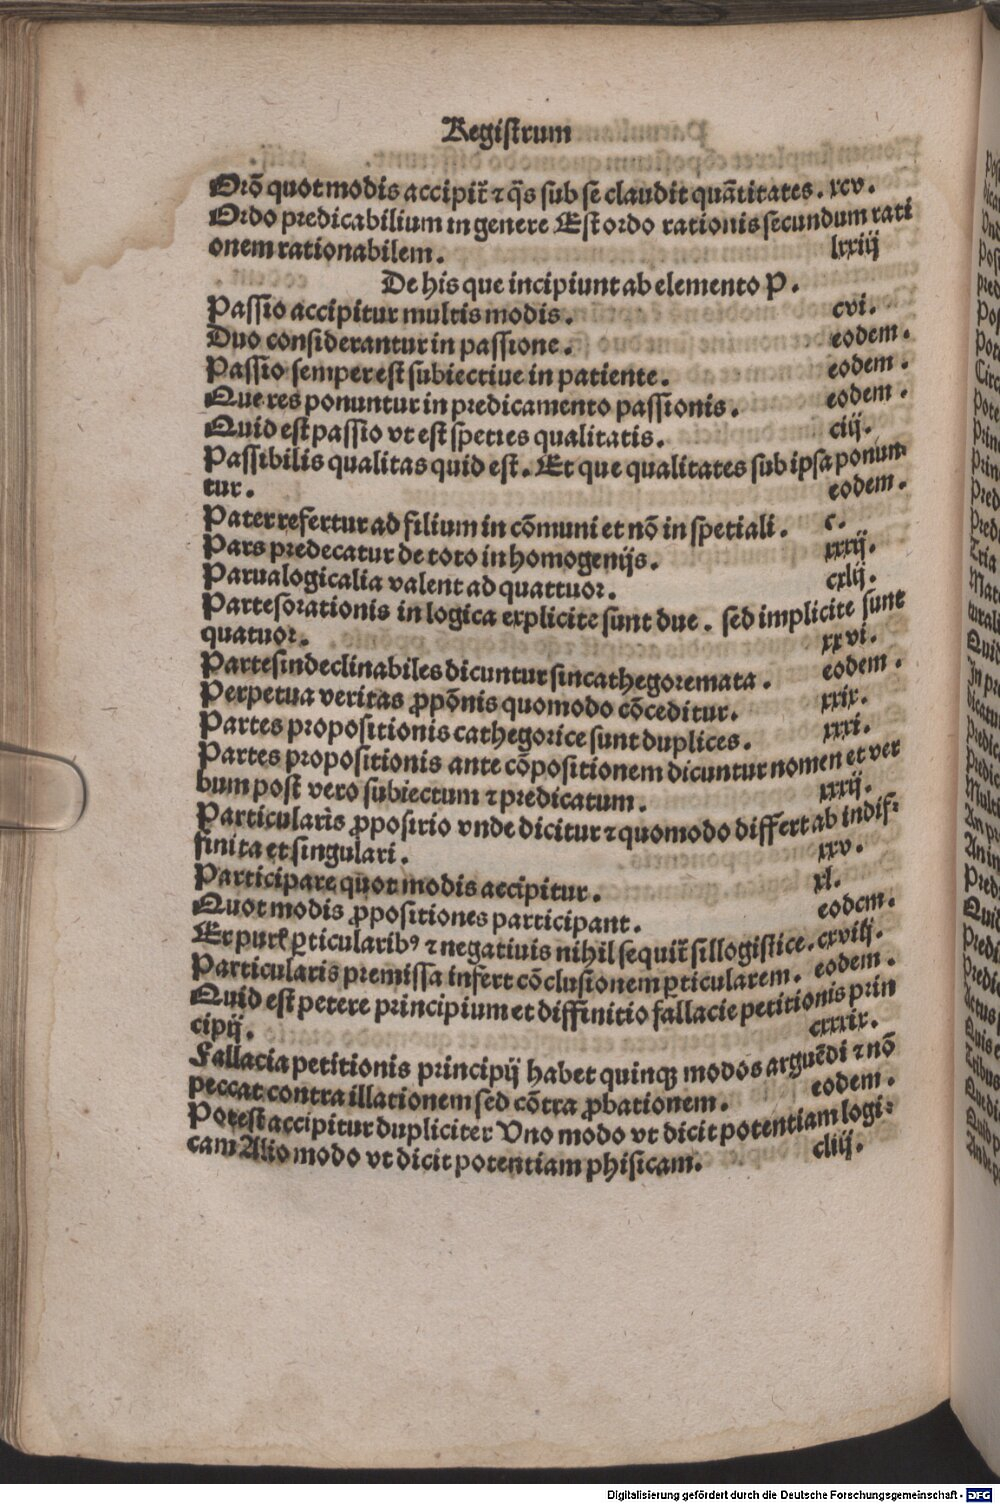 Registrum
Orō quot modis accipit̄ ⁊ q̄s sub se claudit quātitates. xcv.
Ordo predicabilium in genere Est ordo rationis secundum rati
onem rationabilem. lxxiij
De his que incipiunt ab elemento P.
Passio accipitur multis modis. cvi.
Duo considerantur in passione. eodem.
Passio semper est subiectiue in patiente. eodem.
Que res ponuntur in predicamento passionis. eodem.
Quid est passio vt est speties qualitatis. ciij.
Passibilis qualitas quid est. Et que qualitates sub ipsa ponun-
tur. eodem.
Pater refertur ad filium in cōmuni et nō in spetiali. c.
Pars predecatur de toto in homogenijs. xxxij.
Parua logicalia valent ad quattuor. cxlij.
Partes orationis in logica explicite sunt due. sed implicite sunt
quatuor. xxvi.
Partes indeclinabiles dicuntur sincathegoremata. eodem.
Perpetua veritas ꝓpōnis quomodo cōceditur. xxix.
Partes propositionis cathegorice sunt duplices. xxxi.
Partes propositionis ante cōpositionem dicuntur nomen et ver
bum post vero subiectum ⁊ predicatum. xxxij.
Particularis ꝓpositio vnde dicitur ⁊ quomodo differt ab indif-
finita et singulari. xxv.
Participare quot modis accipitur. xl.
Quot modis ꝓpositiones participant. eodem.
Ex pur⁊ ꝑticularibꝰ ⁊ negatiuis nihil sequit̄ sillogistice. cxviij.
Particularis premissa infert cōclusionem ꝑticularem. eodem.
Quid est petere principium et diffinitio fallacie petitionis prin
cipij. cxxxix.
Fallacia petitionis principij habet quinqꝫ modos arguēdi ⁊ nō
peccat contra illationem sed cōtra ꝓbationem. eodem.
Potest accipitur dupliciter Vno modo vt dicit potentiam logi-
cam Alio modo vt dicit potentiam phisicam. cliij.
Digitalisierung gefördert durch die Deutsche Forschungsgemeinschaft - DFG